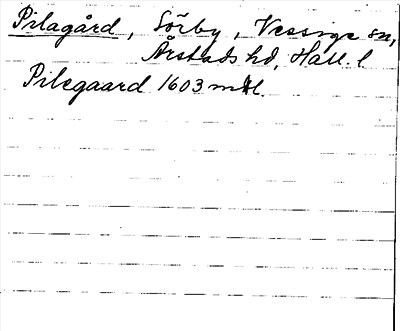 Pilagård, Sörby, Vessige sn,
Årstads hd, Hall. l.
Pilegaard 1603 mtl.